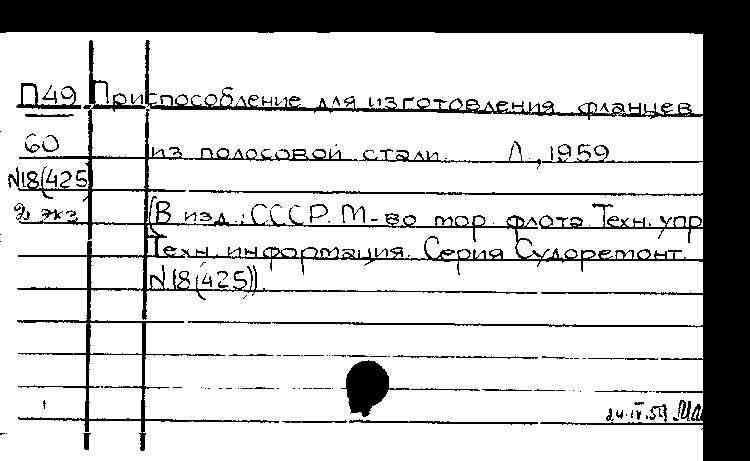 П49 Приспособление для изготовления фланцев
60 из полосовой стали. Л., 1959
N18(425)
2 экз. (В изд.: СССР. М-во мор. флота. Техн. упр
Техн. информация. Серия Судоремонт.
N18(425))
24.IV.59